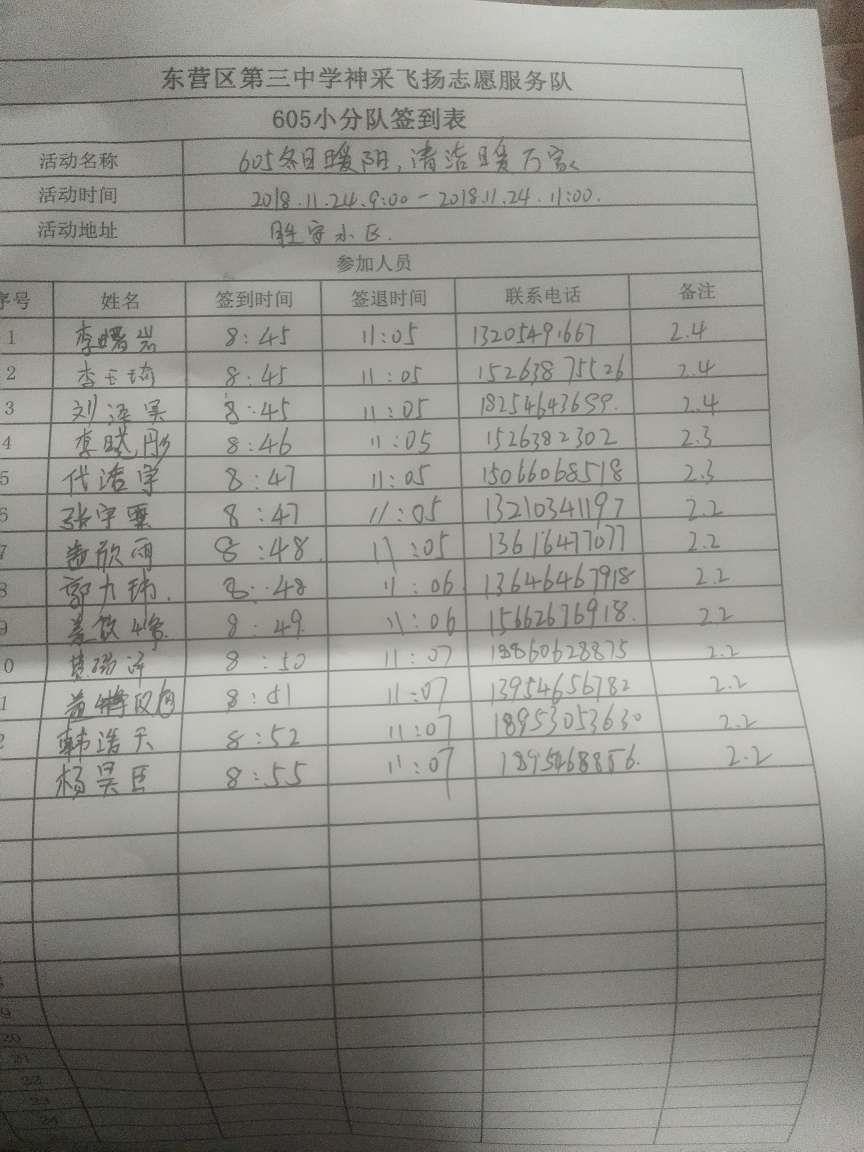 东营区第三中学神采飞扬志愿服务队
605小分队签到表
活动名称 605冬日暖阳,清洁暖万家
活动时间 2018.11.24.9:00-2018.11.24.11:00.
活动地址 胜安小区.
参加人员
序号 姓名 签到时间 签退时间 联系电话 备注
1 李曙岩 8:45 11:05 13205491667 2.4
2 8:45 11:05 15263875526 2.4
3 刘泽昊 8:45 11:05 18254643659. 2.4
4 8:46 11:05 1526382302 2.3
5 代浩宇 8:47 11:05 15066068518 2.3
6 8:47 11:05 13210341197 2.2
7 8:48 11:05 13616477077 2.2
8 8:48 11:06 13646467918 2.2
9 8:49 11:06 15662676918. 2.2
0 8:50 11:07 18860628875 2.2
1 8:51 11:07 13954656782 2.2
2 韩浩天 8:52 11:07 18953053630 2.2
杨昊臣 8:55 11:07 2.2
9
20
21
22
23
24